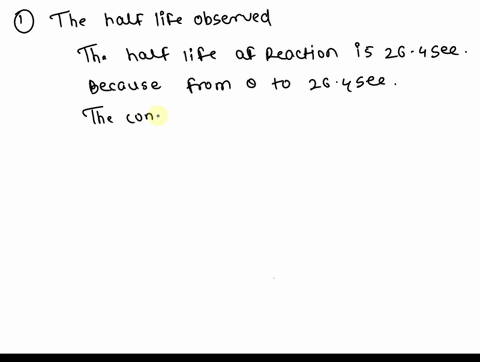 ① The half life observed
The half life of Reaction is 26.4 see.
Because from 0 to 26.4 see.
The con.